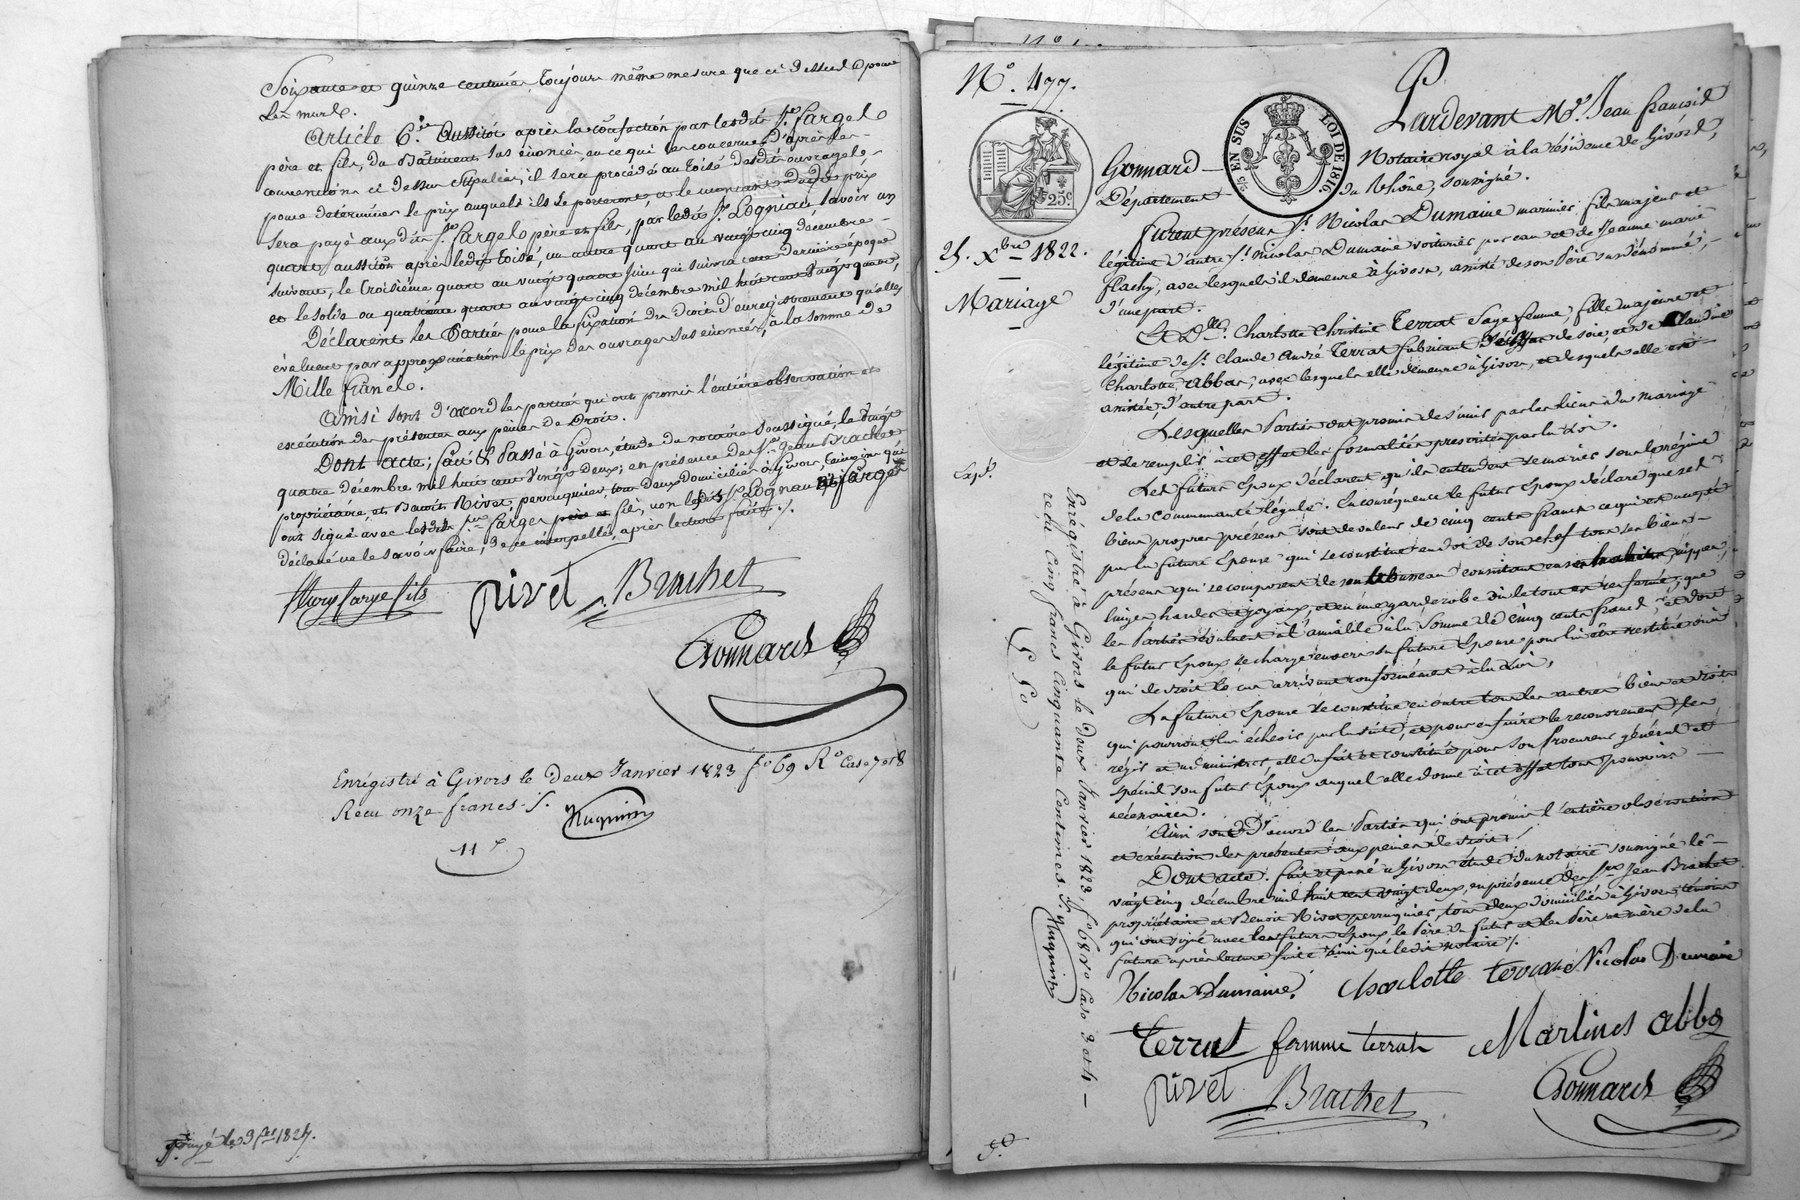 Soixante et quinze centimes, toujours même mesure que ci dessus pour
les murs.
Article 6.e Aussitôt après la confection par lesdits Srs. Farges
père et fils, du Bâtiment sus énoncé, en ce qui les concerne d'après les
conventions ci dessus stipulées, il sera procédé au toisé desdits ouvrages
pour déterminer le prix auquel ils se porteront, et le montant dudit prix
sera payé aux dits Srs. Farges père et fils, par ledit Sr. Logniau, savoir un
quart aussitôt après ledit toisé, un autre quart au vingt cinq décembre
suivant, le troisième quart au vingt quatre juin qui suivra cette dernière époque
et le solde ou quatrième quart au vingt cinq décembre mil huit cent vingt quatre,
Déclarent les Parties pour la fixation du droit d'enregistrement qu'elles
évaluent par approximation le prix des ouvrages sus énoncés, à la somme de
Mille francs.
Ainsi sont d'accord les parties qui ont promis l'entière observation et
exécution des présentes aux peines de Droit.
Dont acte; fait & Passé à Givors, étude du notaire soussigné, le vingt
quatre décembre mil huit cent vingt deux; en présence de Srs. Jean Brachet
propriétaire, et Benoit Rivet, perruquier, tous deux domiciliés à Givors, témoins qui
ont signé avec lesdits Srs. Farges fils, non ledit Sr. Logniau ni Farges
déclaré ne le savoir faire, de ce interpellés, après lecture faite.
fleury farge fils rivet Brachet
Gonnard
Enregistré à Givors le deux Janvier 1823 fo 69 Ro Case 7 et 8
Reçu onze francs
Hugnin
11 f
N.o 477.
25. Xbre 1822.
Mariage
Exp.
25 c
5/45 EN SUS LOI DE 1816
Pardevant M.e Jean françois
Gonnard Notaire royal à la résidence de Givors,
Département du Rhône, soussigné.
furent présens Sr. Nicolas Dumaine marinier fils majeur et
légitime d'autre Sr. Nicolas Dumaine voiturier par eau et de Jeanne marie
flachy, avec lesquels il demeure à Givors, assisté de son Père susdénommé,
d'une part.
Et Dlle. Charlotte Christine Terrat Sage femme, fille majeure et
légitime de Sr. Claude André Terrat fabricant de soie, et de Claudine
Charlotte Abbas, avec lesquels elle demeure à Givors, et desquels elle est
assistée, d'autre part.
Lesquelles Parties ont promis de s'unir par les liens du mariage
et de remplir à cet effet les formalités prescrites par la Loi.
Les futurs Epoux déclarent qu'ils entendent se marier sous le régime
de la communauté légale. En conséquence le futur Epoux déclare que ses
biens propres présens sont de valeur de cinq cents francs ce qui est accepté
par la future Epouse qui se constitue en dot de son chef tous ses biens
présens qui se composent de son trousseau consistant en ses habits, nippes,
linges hardes et joyaux, et en une garderobe où le tout est renfermé, que
les Parties évaluent à l'amiable à la somme de cinq cents francs, et dont
le futur Epoux se charge envers sa future Epouse pour lui être restitué ou à
qui de droit le cas arrivant conformément à la Loi.
La future Epouse se constitue en outre tous les autres biens et droits
qui pourront lui échoir par la suite, et pour en faire le recouvrement, les
régir et administrer, elle fait et constitue pour son Procureur général et
spécial son futur Epoux auquel elle donne à cet effet tous pouvoirs
nécessaires.
Ainsi sont D'accord les Parties qui ont promis l'entière observation
et exécution des présentes aux peines de droit.
Dont acte. fait et passé à Givors étude du notaire soussigné le
vingt cinq décembre mil huit cent vingt deux, en présence des Srs. Jean Brachet
propriétaire et Benoit Rivet perruquier, tous deux domiciliés à Givors témoins
qui ont signé avec les futurs Epoux le Père du futur et les Père et mère de la
future après lecture faite ainsi que ledit notaire.
Nicolas Dumaine. charlotte terrat Nicolas Dumaine
Terrat femme terrat Martines abbo
rivet Brachet Gonnard
Enregistré à Givors le deux Janvier 1823, fo 68 vo Case 3 et 4
reçu cinq francs cinquante centimes. Hugnin
5 f 50